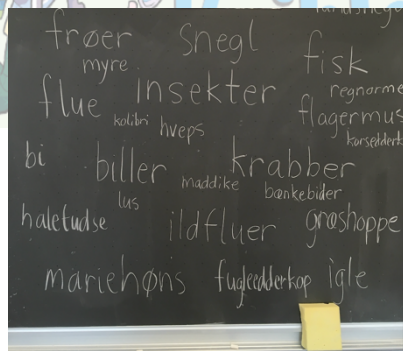 frøer snegl fisk
myre
flue insekter regnorme
kolibri hveps flagermus
bi biller krabber
lus maddike bænkebider
haletudse ildfluer græshoppe
mariehøns fugleedderkop igle